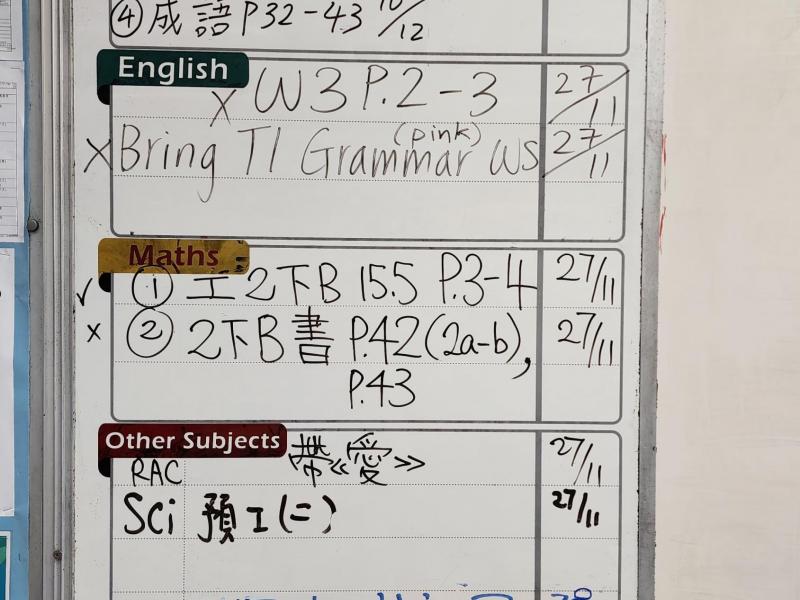 ④成語 P32-43 10/12
English
X W3 P.2-3 27/11
(pink)
X Bring T1 Grammar WS 27/11
Maths
✓ ① 工2下B 15.5 P.3-4 27/11
x ② 2下B書 P.42(2a-b), 27/11
P.43
Other Subjects
RAC 帶《愛》 27/11
Sci 預工(二) 27/11